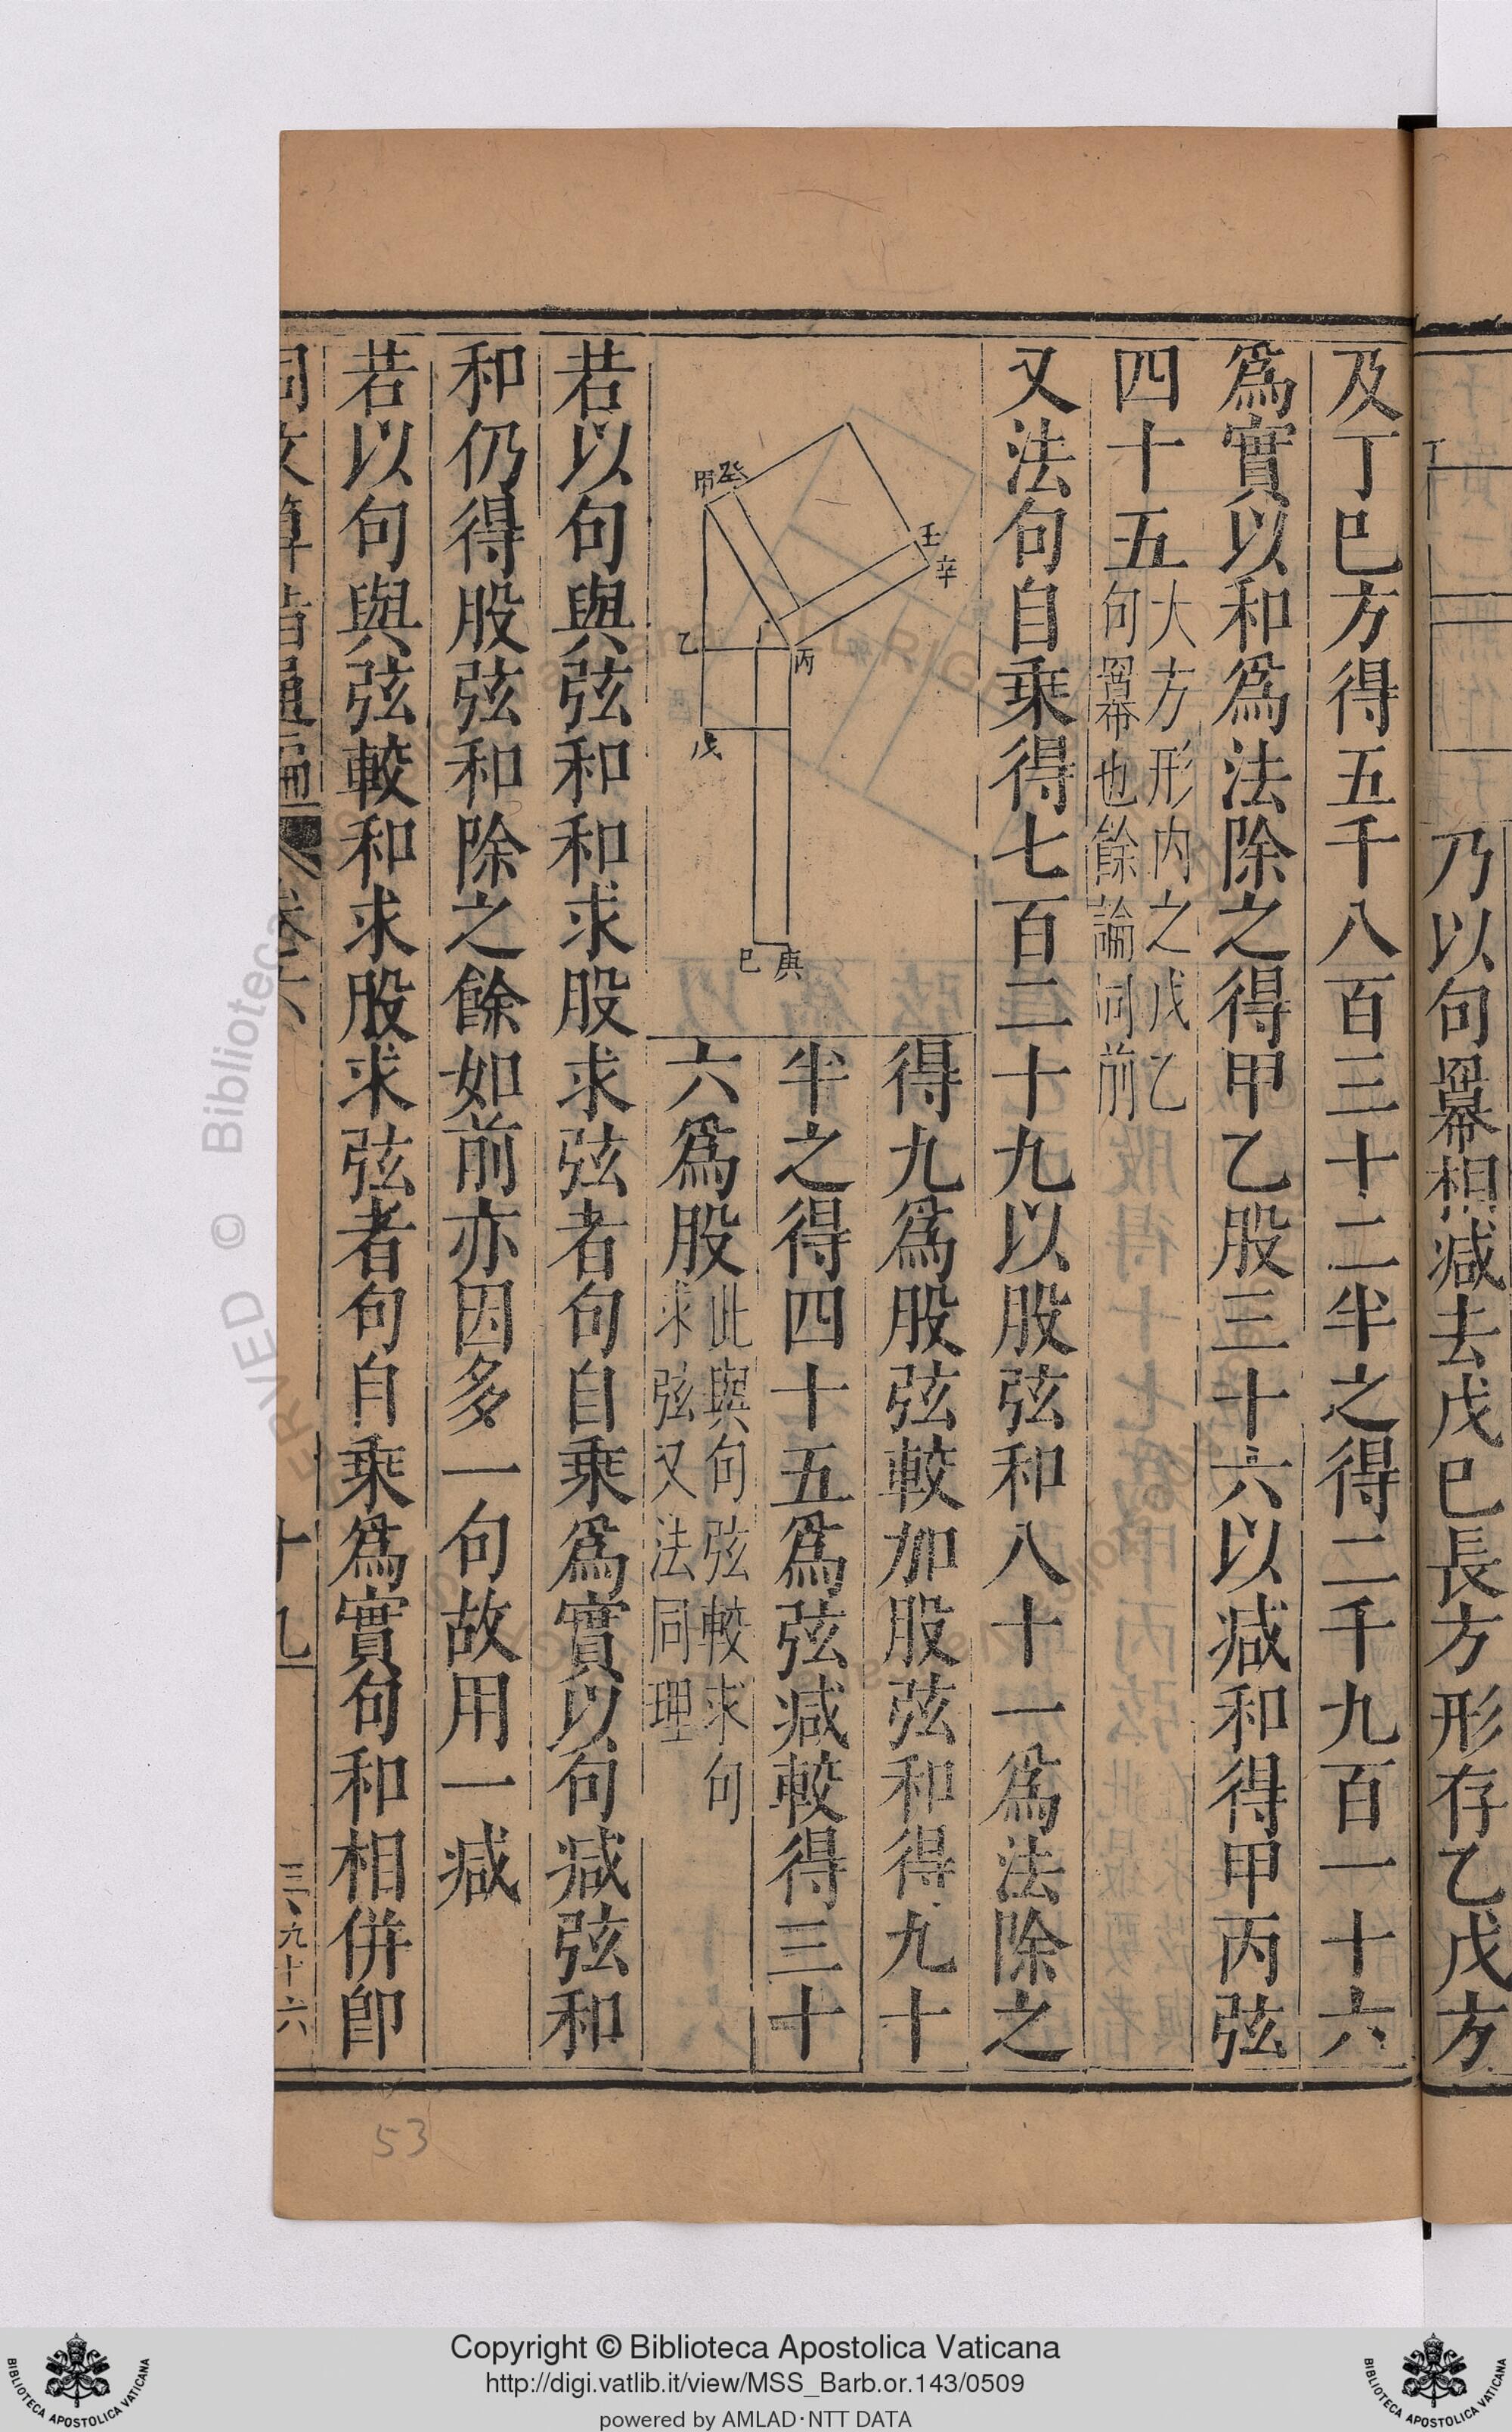 乃以句羃相減去戊巳長方形存乙戊方
及丁巳方得五千八百三十二半之得二千九百一十六
爲實以和爲法除之得甲乙股三十六以減和得甲丙弦
四十五大方形内之戊乙
句羃也餘論同前
又法句自乘得七百二十九以股弦和八十一爲法除之
得九爲股弦較加股弦和得九十
半之得四十五爲弦減較得三十
六爲股此與句弦較求句
求弦又法同理
甲 癸
壬
辛
乙
丙
戊
巳 庚
若以句與弦和和求股求弦者句自乘爲實以句減弦和
和仍得股弦和除之餘如前亦因多一句故用一減
若以句與弦較和求股求弦者句自乘爲實句和相併卽
同文算指通編 卷六 十九 三九十六
53
Copyright © Biblioteca Apostolica Vaticana
http://digi.vatlib.it/view/MSS_Barb.or.143/0509
powered by AMLAD·NTT DATA
BIBLIOTECA APOSTOLICA VATICANA
BIBLIOTECA APOSTOLICA VATICANA